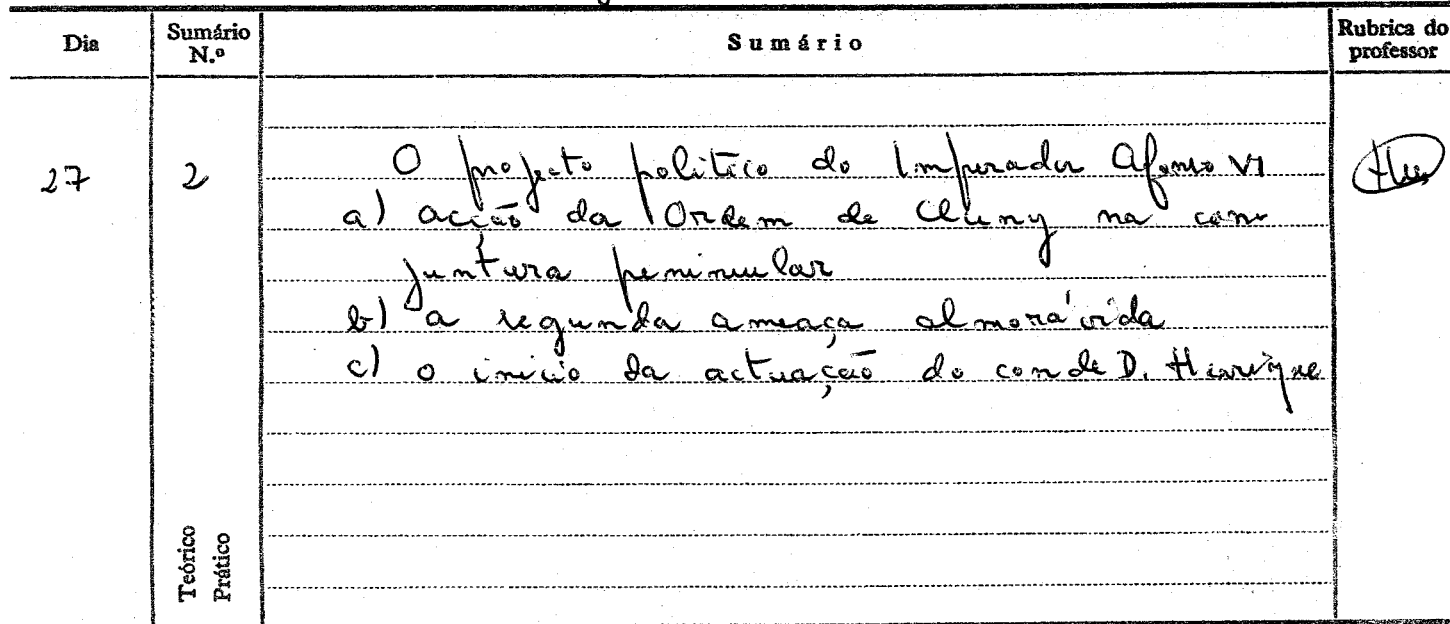 Dia
Sumário N.º
Sumário
Rubrica do professor
27
2
O projecto politico do Imperador Afonso VI
a) acção da Ordem de Cluny na con
juntura peninsular
b) a segunda ameaça almorávida
c) o inicio da actuação do conde D. Henrique
Teórico
Prático